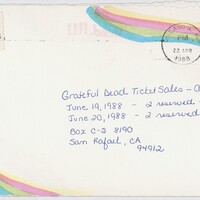 PM
1988
Grateful Dead Ticket Sales -
June 19, 1988 - 2 reserved
June 20, 1988 - 2 reserved
Box C-S 8190
San Rafael, CA
94912